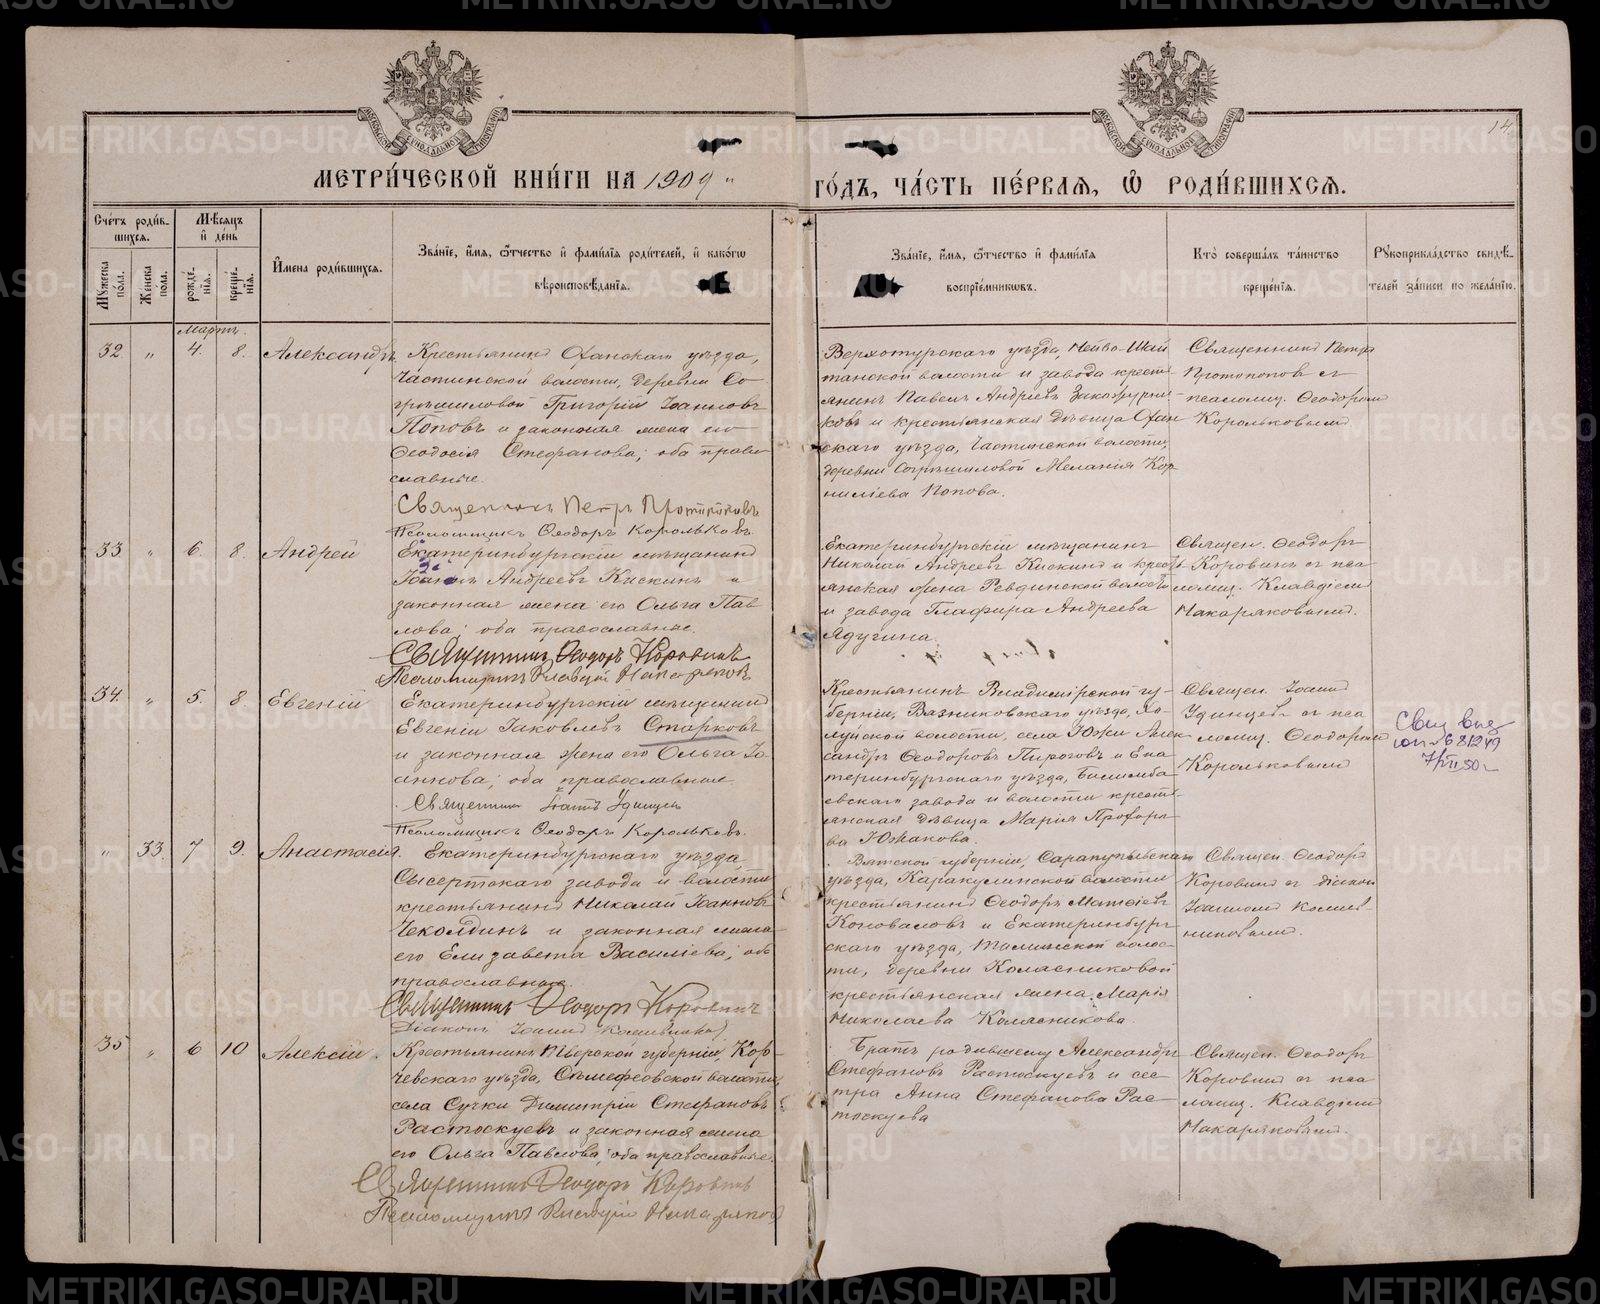 МЕТРИ́ЧЕСКОЙ КНИ́ГИ НА 1909 "
ГО́ДЪ, ЧА́СТЬ ПЕ́РВАЯ, Ѡ҆ РОДИ́ВШИХСЯ.
14
Сче́тъ роди́в-
шихся.
Мѣ́сяцъ
и҆ де́нь
Мꙋ́жеска
по́ла.
Же́нска
пола.
рожде́-
нїя.
креще́-
нїя.
И҆мена роди́вшихся.
Зва́нїе, и҆́мя, ѻ҆́тчество и҆ фами́лїя роди́телей, и҆ како́гѡ
вѣроисповѣ́данїя.
Зва́нїе, и҆́мя, ѻ҆́тчество и҆ фами́лїя
воспрїе́мникѡвъ.
Кто̀ соверша́лъ та́инство
креще́нїя.
Рꙋкоприкла́дство свидѣ́-
телей за́писи по жела́нїю.
Мартъ.
32. " 4. 8. Александръ
Крестьянинъ Оханскаго уѣзда,
Частинской волости, деревни Со-
грѣшиловой Григорій Іоанновъ
Поповъ и законная жена его
Ѳеодосія Стефанова; оба право-
славные.
Священникъ Петръ Протопоповъ
Псаломщикъ Ѳеодоръ Корольковъ.
Верхотурскаго уѣзда, Нейво-Шай
танской волости и завода кресть
янинъ Павелъ Андреевъ
ковъ и крестьянская дѣвица Охан
скаго уѣзда, Частинской волости,
деревни Согрѣшиловой Меланія Кор
ниліева Попова.
Священникъ Петръ
Протопоповъ съ
псаломщ. Ѳеодоромъ
Корольковымъ
33 " 6. 8. Андрей
Екатеринбургскій мѣщанинъ
Іоаннъ Андреевъ Кискинъ и
законная жена его Ольга Пав
лова; оба православные.
Священникъ Ѳеодоръ Коровинъ
Псаломщикъ Клавдій Макаряковъ
Екатеринбургскій мѣщанинъ
Николай Андреевъ Кискинъ и кресть
янская жена Ревдинской волости
и завода Глафира Андреева
Ядугина.
Священ. Ѳеодоръ
Коровинъ съ пса
ломщ. Клавдіемъ
Макаряковымъ.
34. " 5. 8 Евгеній
Екатеринбургскій мѣщанинъ
Евгеній Іаковлевъ Старковъ
и законная жена его Ольга Іо
аннова; оба православные
Священникъ Іоаннъ Удинцевъ
Псаломщикъ Ѳеодоръ Корольковъ.
Крестьянинъ Владимірской гу-
берніи, Вязниковскаго уѣзда, Хо-
луйской волости, села Южи Алек
сандръ Ѳеодоровъ Пироговъ и Ека
теринбургскаго уѣзда, Билимба
евскаго завода и волости кресть-
янская дѣвица Марія Прохоро
ва Южакова.
Священ. Іоаннъ
Удинцевъ съ пса
ломщ. Ѳеодоромъ
Корольковымъ
681249
" 33. 7 9. Анастасія.
Екатеринбургскаго уѣзда,
Сысертскаго завода и волости
крестьянинъ Николай Іоанновъ
Чеколдинъ и законная жена
его Елизавета Василіева; оба
православные.
Священникъ Ѳеодоръ Коровинъ
Діаконъ Іоаннъ
Вятской губерніи, Сарапульскаго
уѣзда, Каракулинской волости
крестьянинъ Ѳеодоръ Матѳіевъ
Коноваловъ и Екатеринбург
скаго уѣзда, волос-
ти, деревни Колясниковой
крестьянская жена Марія
Николаева Колясникова.
Священ. Ѳеодоръ
Коровинъ съ діакон
Іоанномъ
35 " 6 10 Алексій.
Крестьянинъ Тверской губерніи, Кор-
чевскаго уѣзда, волости,
села Сучки Димитрій Стефановъ
Растоскуевъ и законная жена
его Ольга Павлова; оба православные.
Священникъ Ѳеодоръ Коровинъ
Псаломщикъ Клавдій Макаряковъ
Братъ родившему Александръ
Стефановъ Растоскуевъ и сес-
тра Анна Стефанова Рас-
тоскуева
Священ. Ѳеодоръ
Коровинъ съ пса
ломщ. Клавдіемъ
Макаряковымъ.